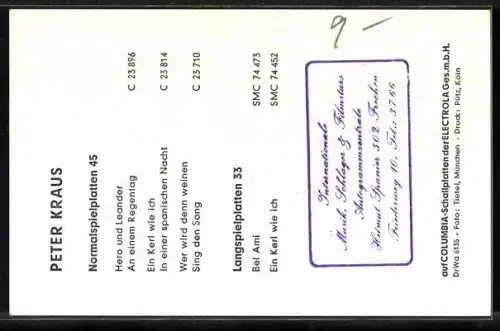 PETER KRAUS
Normalspielplatten 45
Hero und Leander
An einem Regentag C 23 896
Ein Kerl wie ich
In einer spanischen Nacht C 23 814
Wer wird denn weinen
Sing den Song C 23 710
Langspielplatten 33
Bel Ami SMC 74 473
Ein Kerl wie ich SMC 74 452
9 –
Internationale
Musik, Schlager & Filmstars
Autogrammzentrale
Helmut Spanier 502 Frechen
Fürderweg 10, Tel.: 3766
auf COLUMBIA-Schallplatten der ELECTROLA Ges.m.b.H.
DrWa 6135 - Foto: Tietel, München - Druck: Pütz, Köln